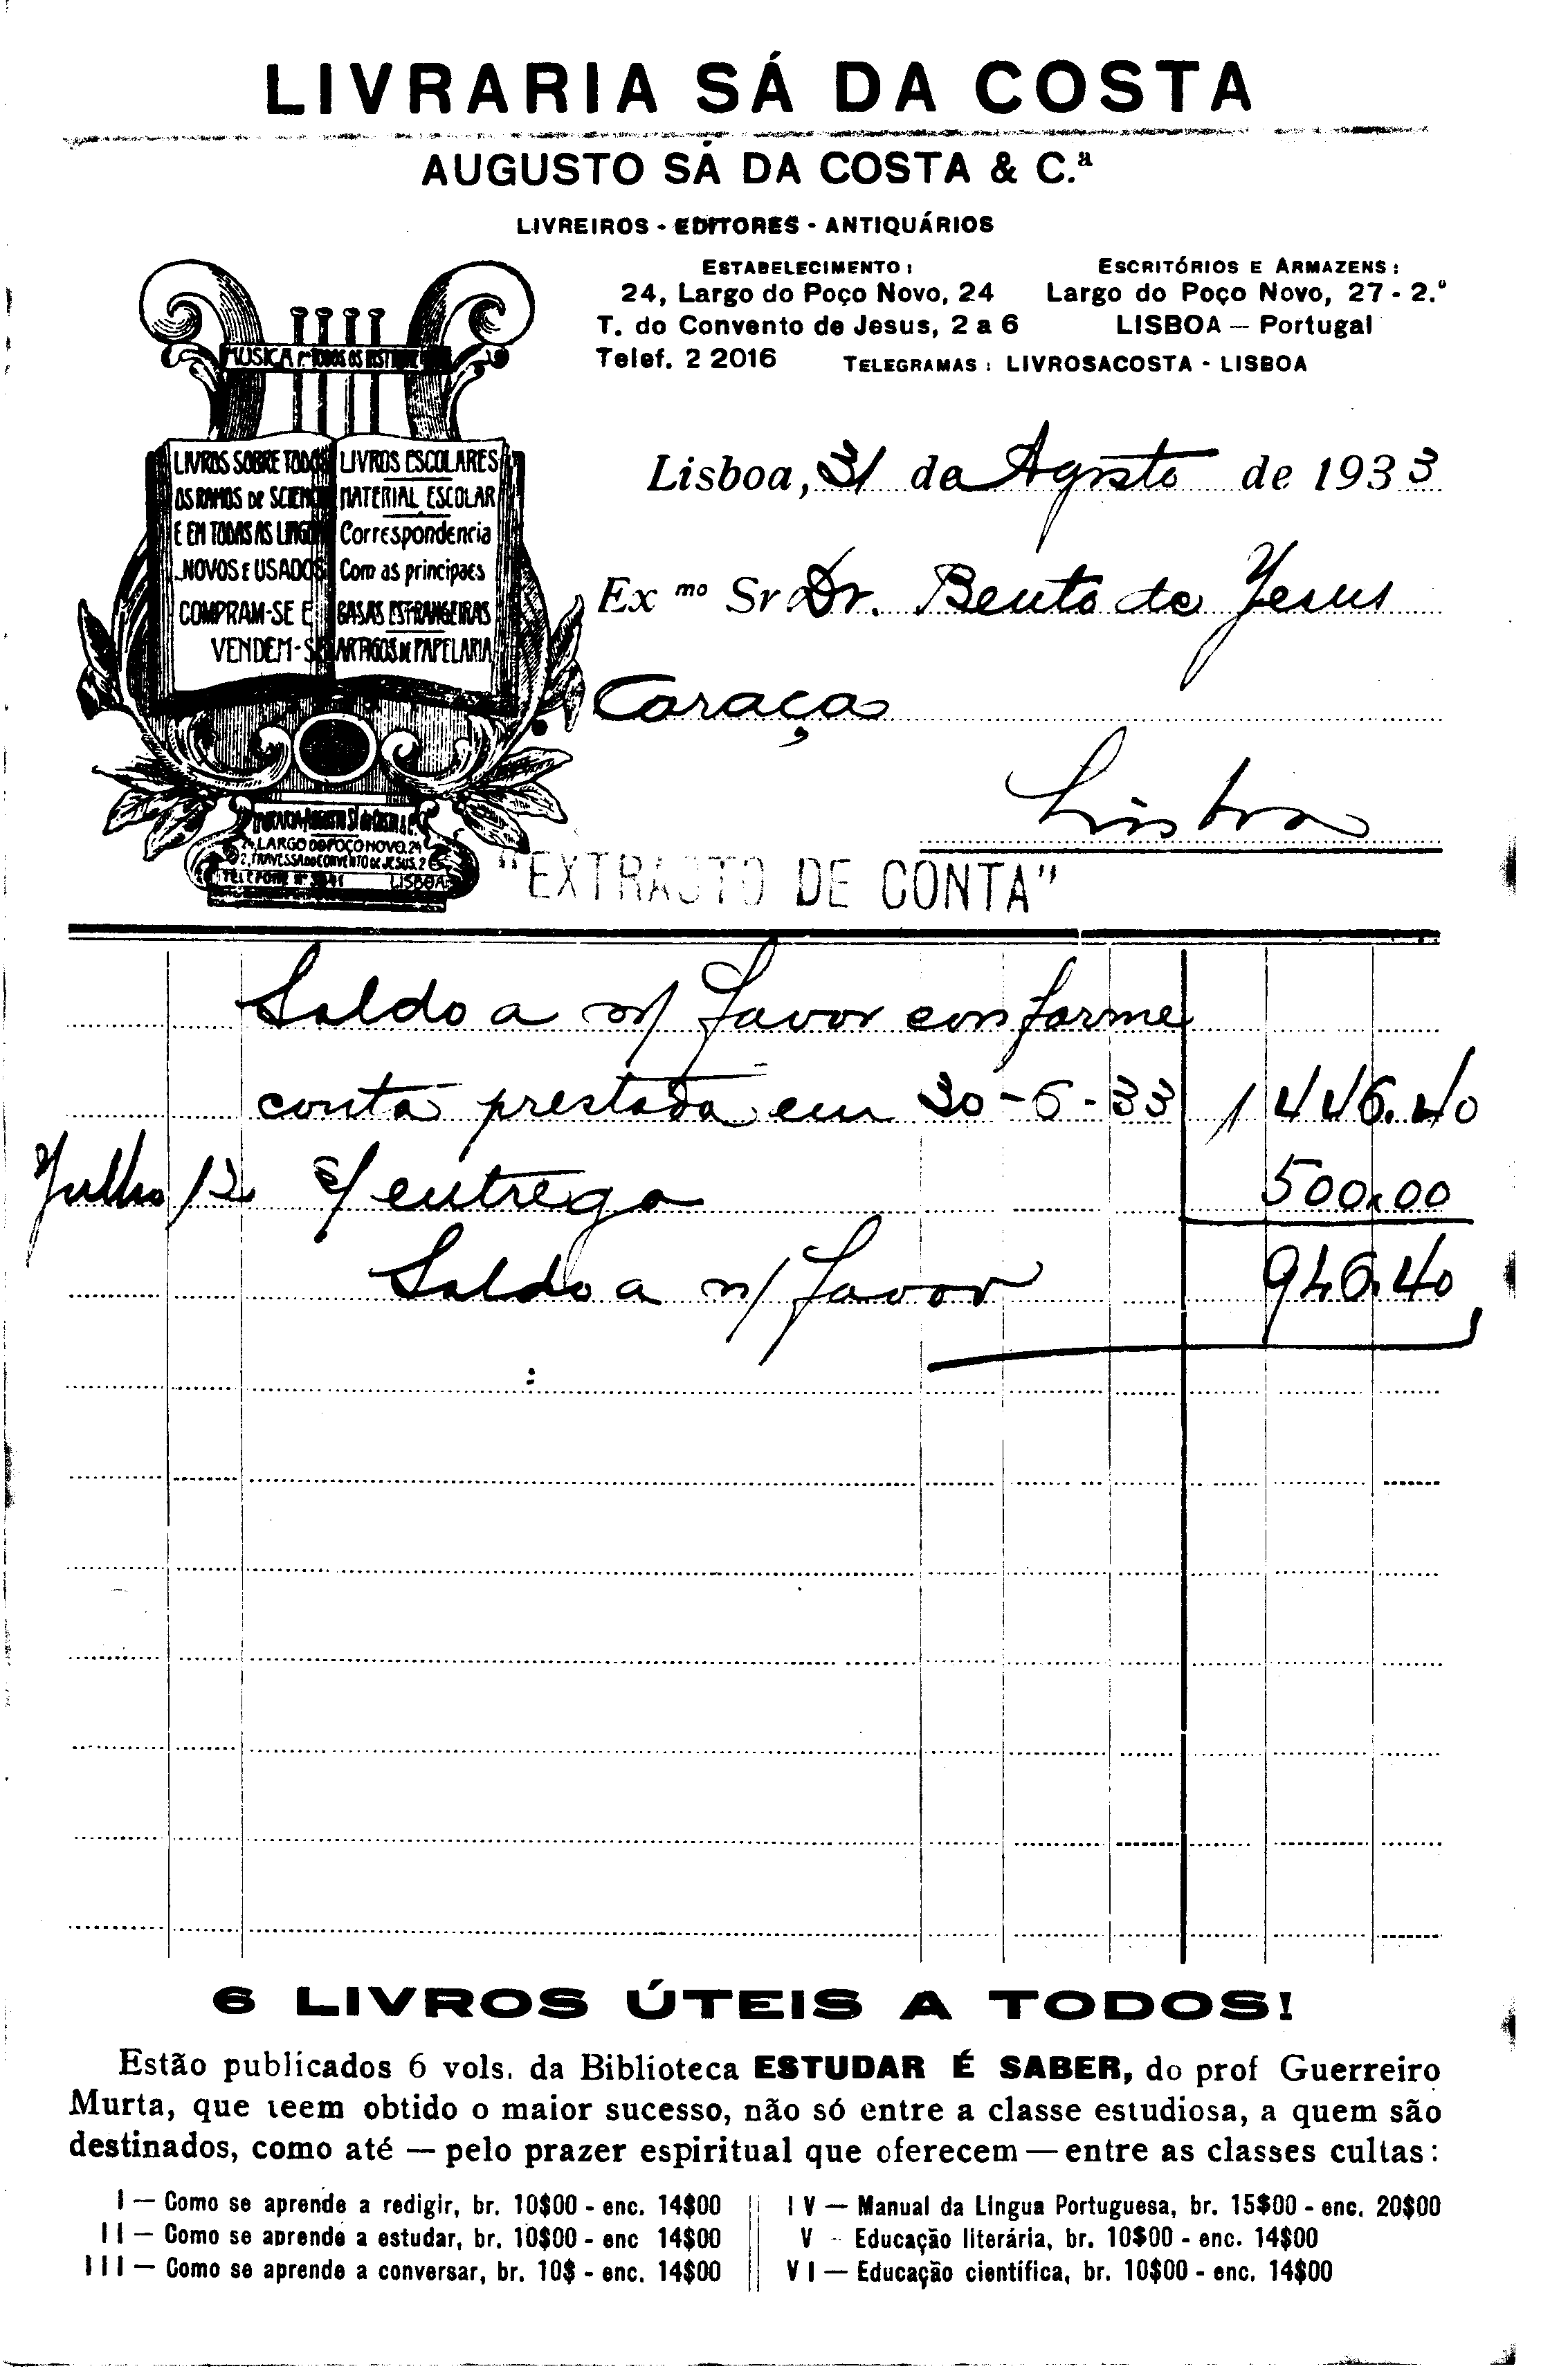 LIVRARIA SÁ DA COSTA
AUGUSTO SÁ DA COSTA & C.ª
LIVREIROS - EDITORES - ANTIQUÁRIOS
ESTABELECIMENTO :
24, Largo do Poço Novo, 24
T. do Convento de Jesus, 2 a 6
Telef. 2 2016
ESCRITÓRIOS E ARMAZENS :
Largo do Poço Novo, 27 - 2.º
LISBOA — Portugal
TELEGRAMAS : LIVROSACOSTA - LISBOA
MUSICA P.ª TODOS OS
LIVROS SOBRE TODOS
OS RAMOS DE SCIENC
E EM TODAS AS LINGO
NOVOS E USADOS
COMPRAM-SE E
VENDEM-SE
LIVROS ESCOLARES
MATERIAL ESCOLAR
Correspondencia
Com as principaes
CASAS ESTRANGEIRAS
ARTIGOS DE PAPELARIA
24, LARGO DO POÇO NOVO, 24
2, TRAVESSA DO CONVENTO DE JESUS, 2
TELEFONE LISBOA
Lisboa, 31 de Agosto de 1933
Ex mo Sr Dr. Bento de Jesus
Caraça
Lisboa
"EXTRACTO DE CONTA"
Saldo a n/ favor conforme
conta prestada em 30-6-33 1 446.40
Julho 12 s/ entrega 500.00
Saldo a n/ favor 946.40
6 LIVROS ÚTEIS A TODOS!
Estão publicados 6 vols. da Biblioteca ESTUDAR É SABER, do prof Guerreiro
Murta, que teem obtido o maior sucesso, não só entre a classe estudiosa, a quem são
destinados, como até — pelo prazer espiritual que oferecem — entre as classes cultas :
I — Como se aprende a redigir, br. 10$00 - enc. 14$00
II — Como se aprende a estudar, br. 10$00 - enc 14$00
III — Como se aprende a conversar, br. 10$ - enc. 14$00
IV — Manual da Lingua Portuguesa, br. 15$00 - enc. 20$00
V - Educação literária, br. 10$00 - enc. 14$00
VI — Educação científica, br. 10$00 - enc. 14$00